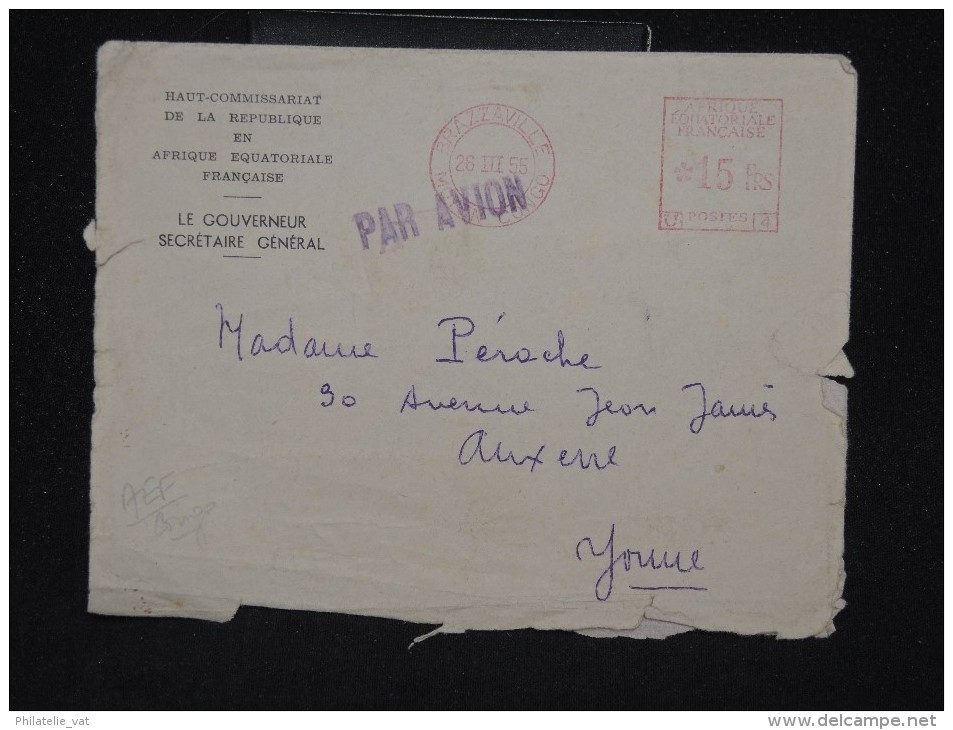 HAUT-COMMISSARIAT
DE LA REPUBLIQUE
EN
AFRIQUE EQUATORIALE
FRANÇAISE
LE GOUVERNEUR
SECRÉTAIRE GÉNÉRAL
BRAZZAVILLE
26 III 55
CONGO
PAR AVION
AFRIQUE
ÉQUATORIALE
FRANÇAISE
*15 FRS
POSTES
Madame Péroche
30 Avenue Jean Jaurès
Auxerre
Yonne
AEF
Congo
Philatelie_vat
www.delcampe.net